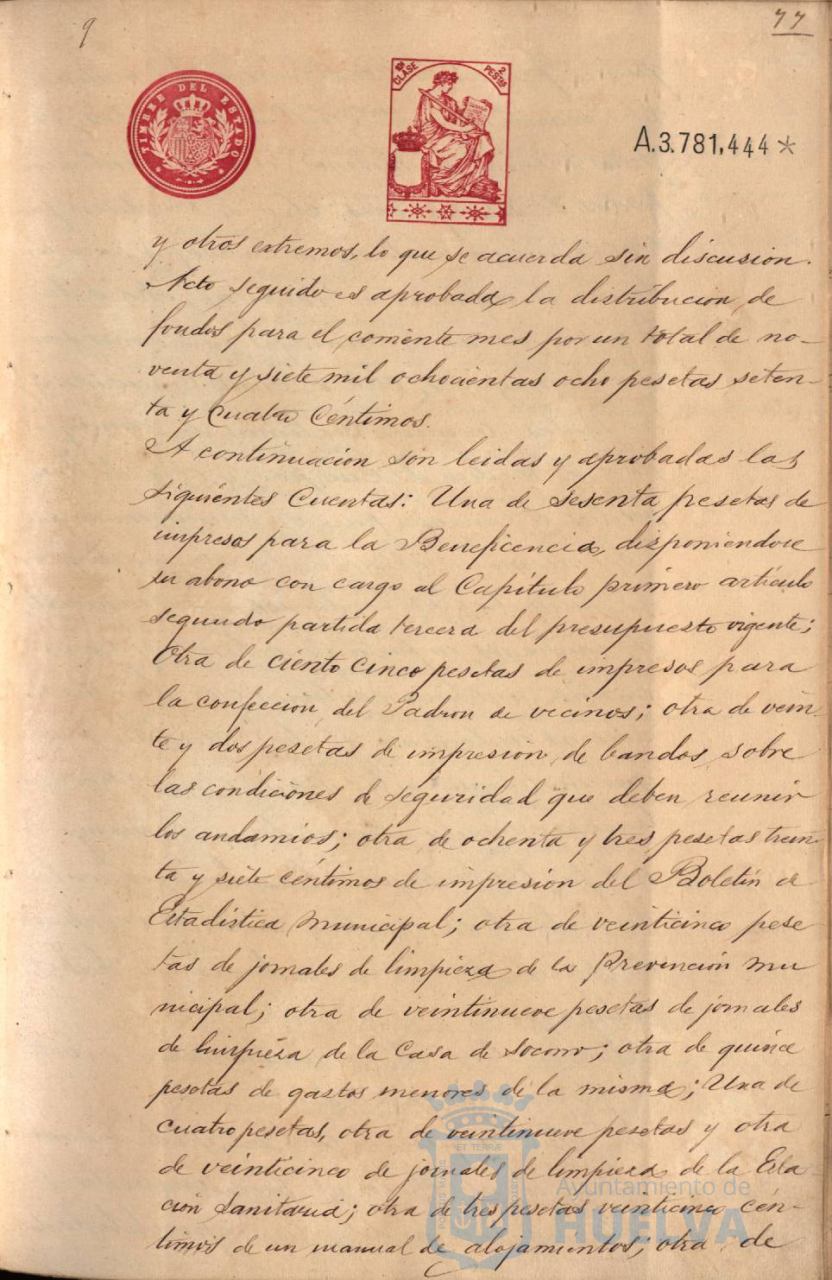 9
77
TIMBRE DEL ESTADO
CLASE
2 PESETAS
A.3.781,444*
y otros extremos, lo que se acuerda sin discusion.
Acto seguido es aprobada la distribucion de
fondos para el corriente mes por un total de no-
venta y siete mil ochocientas ocho pesetas seten-
ta y cuatro Céntimos.
A continuación son leidas y aprobadas las
siguientes Cuentas: Una de sesenta pesetas de
impresos para la Beneficencia, disponiendose
su abono con cargo al Capítulo primero artículo
segundo partida tercera del presupuesto vigente;
Otra de ciento cinco pesetas de impresos para
la confeccion del Padron de vecinos; otra de vein-
te y dos pesetas de impresion de bandos sobre
las condiciones de seguridad que deben reunir
los andamios; otra de ochenta y tres pesetas trein-
ta y siete céntimos de impresion del Boletín de
Estadística Municipal; otra de veinticinco pese
tas de jornales de limpieza de la Prevención mu
nicipal; otra de veintinueve pesetas de jornales
de limpieza de la Casa de Socorro; otra de quince
pesetas de gastos menores de la misma; Una de
cuatro pesetas, otra de veintinueve pesetas y otra
de veinticinco de jornales de limpieza de la Esta
ción Sanitaria; otra de tres pesetas veinticinco cén-
timos de un manual de alojamientos; otra de
Ayuntamiento de
HUELVA